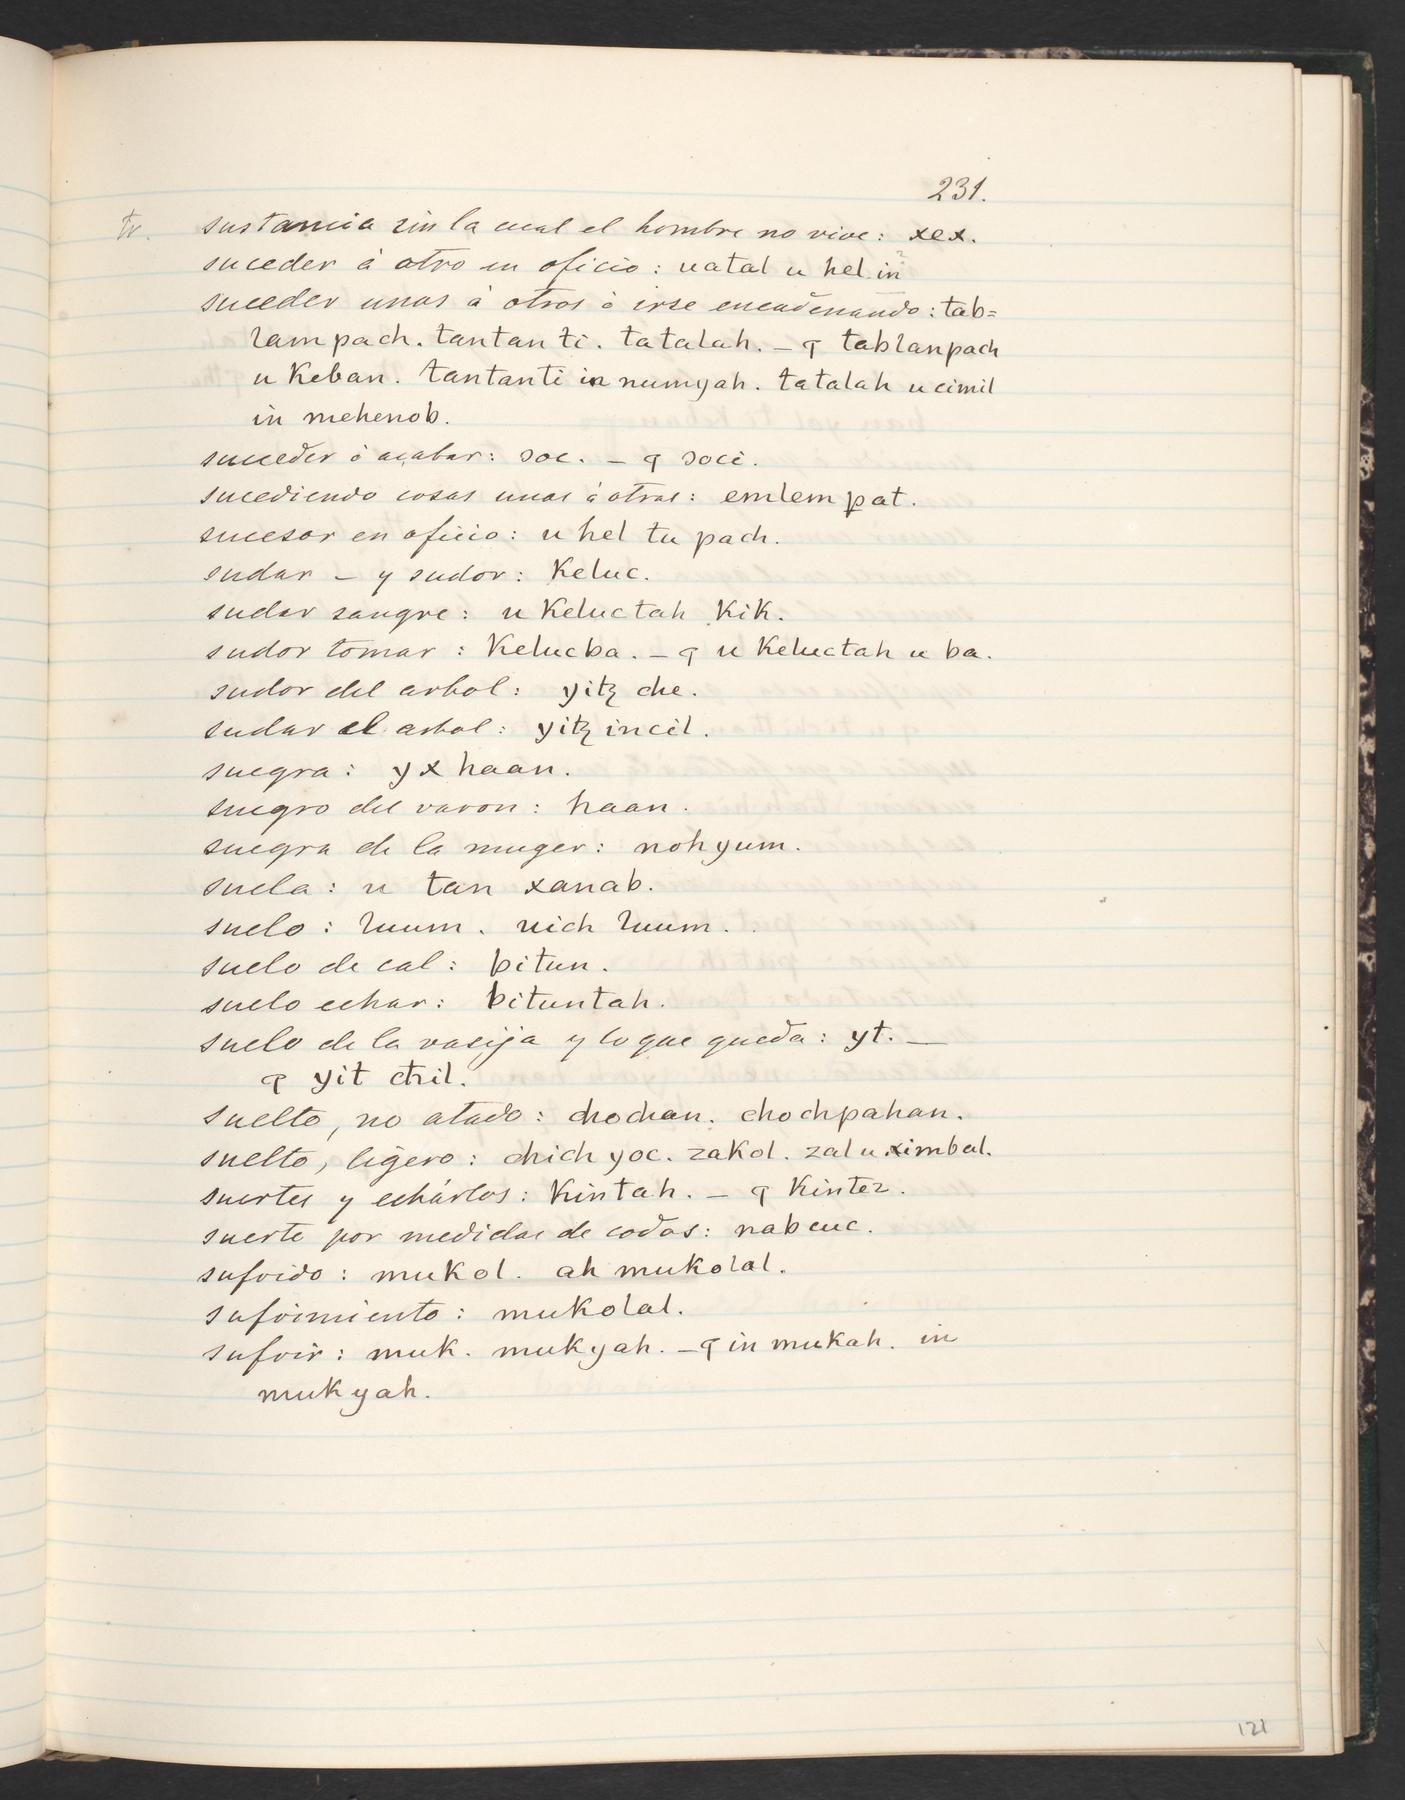 231.
tr. sustancia zin la cual el hombre no vive: xex.
suceder á otro en oficio: uatal u hel in
suceder unas á otras ó irse encadenando: tab=
lampach. tantan ti. tatalah. _ ꟼ tablanpach
u Keban. tantanti in numyah. tatalah u cimil
in mehenob.
succeder ó acabar: ɔoc. _ ꟼ ɔoci.
sucediendo cosas unas á otras: emlem pat.
sucesor en oficio: u hel tu pach.
sudar _ y sudor: Keluc.
sudar sangre: u Keluctah KiK.
sudor tomar: Kelucba. _ ꟼ u Keluctah u ba.
sudor del arbol: yitz che.
sudar el arbol: yitz incil.
suegra: yx haan.
suegro del varon: haan.
suegra de la muger: noh yum.
suela: u tan xanab.
suelo: luum. uich luum.
suelo de cal: bitun.
suelo echar: bituntah.
suelo de la vasija y lo que queda: yt. _
ꟼ yit chil.
suelto, no atado: chochan. chochpahan.
suelto, ligero: chich yoc. zaKol. zal u ximbal.
suertes y echárlas: Kintah. _ ꟼ Kintez.
suerte por medidas de codos: nab cuc.
sufrido: muKol. ah muKolal.
sufrimiento: muKolal.
sufrir: muK. muKyah. _ ꟼ in muKah. in
muKyah.
121